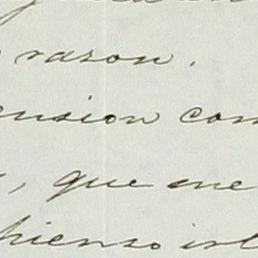 razon.
ension com
, que me
pienso